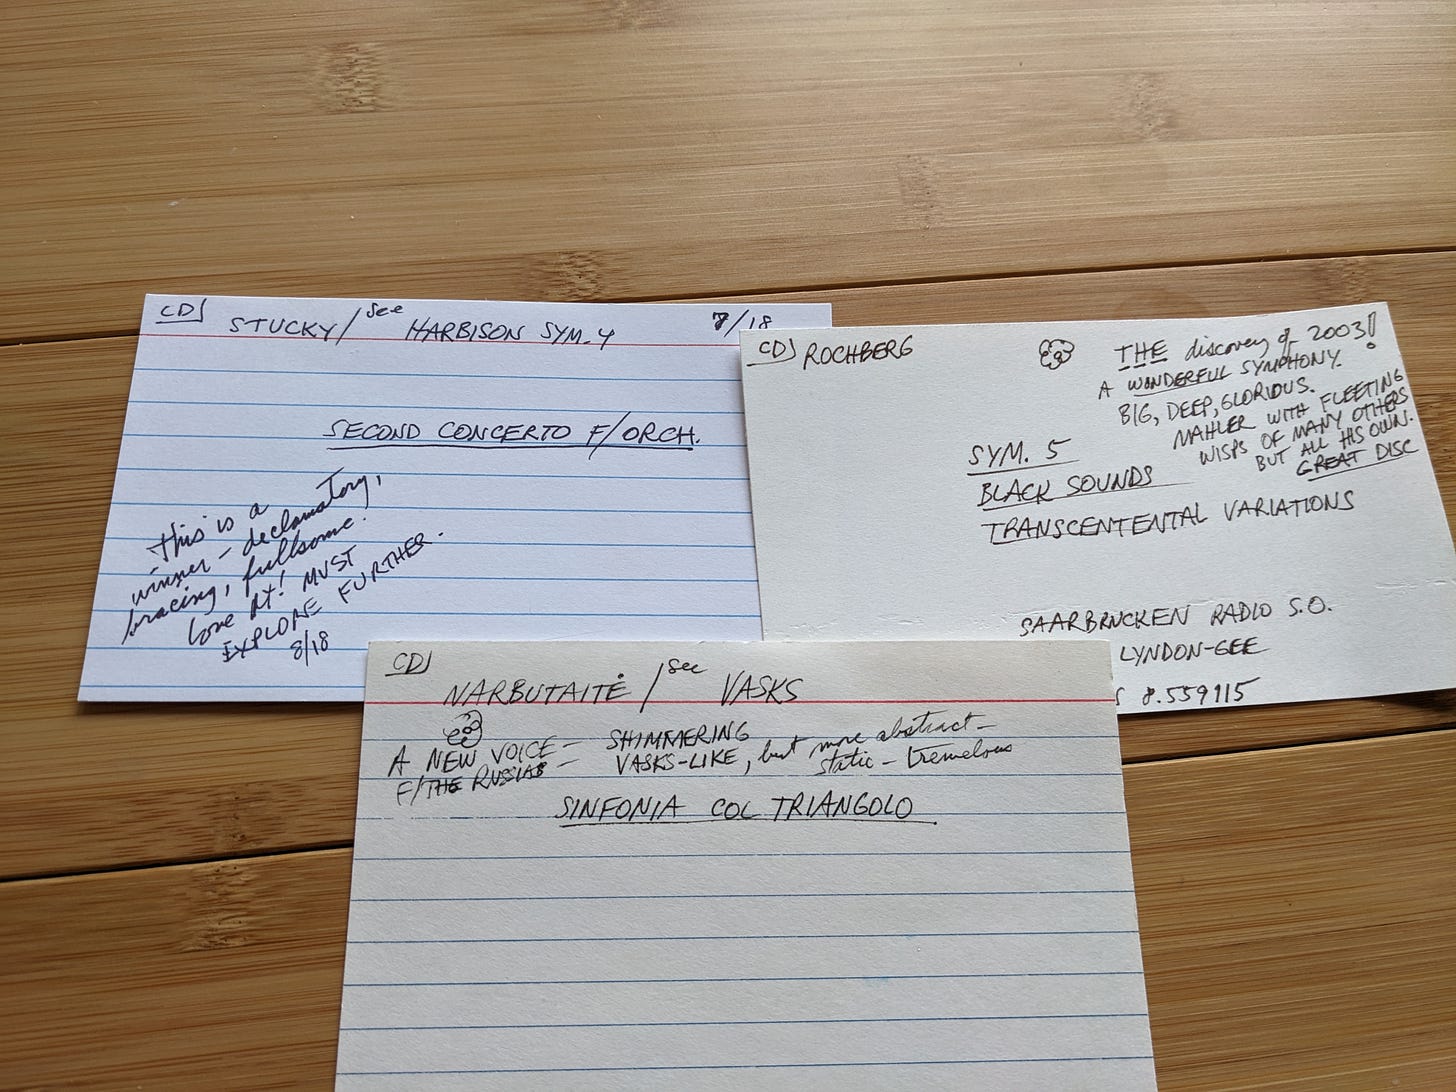 CD STUCKY / see HARBISON SYM. 4 7/18
SECOND CONCERTO F/ORCH.
this is a
winner – declamatory,
bracing, fullsome.
Love it! MUST
EXPLORE FURTHER.
8/18
CD ROCHBERG
THE discovery of 2003!
A WONDERFUL SYMPHONY.
BIG, DEEP, GLORIOUS.
MAHLER WITH FLEETING
WISPS OF MANY OTHERS
BUT ALL HIS OWN.
GREAT DISC
SYM. 5
BLACK SOUNDS
TRANSCENTENTAL VARIATIONS
SAARBRUCKEN RADIO S.O.
LYNDON-GEE
S 8.559115
CD
NARBUTAITĖ / see VASKS
A NEW VOICE – SHIMMERING
F/THE RUSSIAS – VASKS-LIKE, but more abstract –
static – tremelous
SINFONIA COL TRIANGOLO